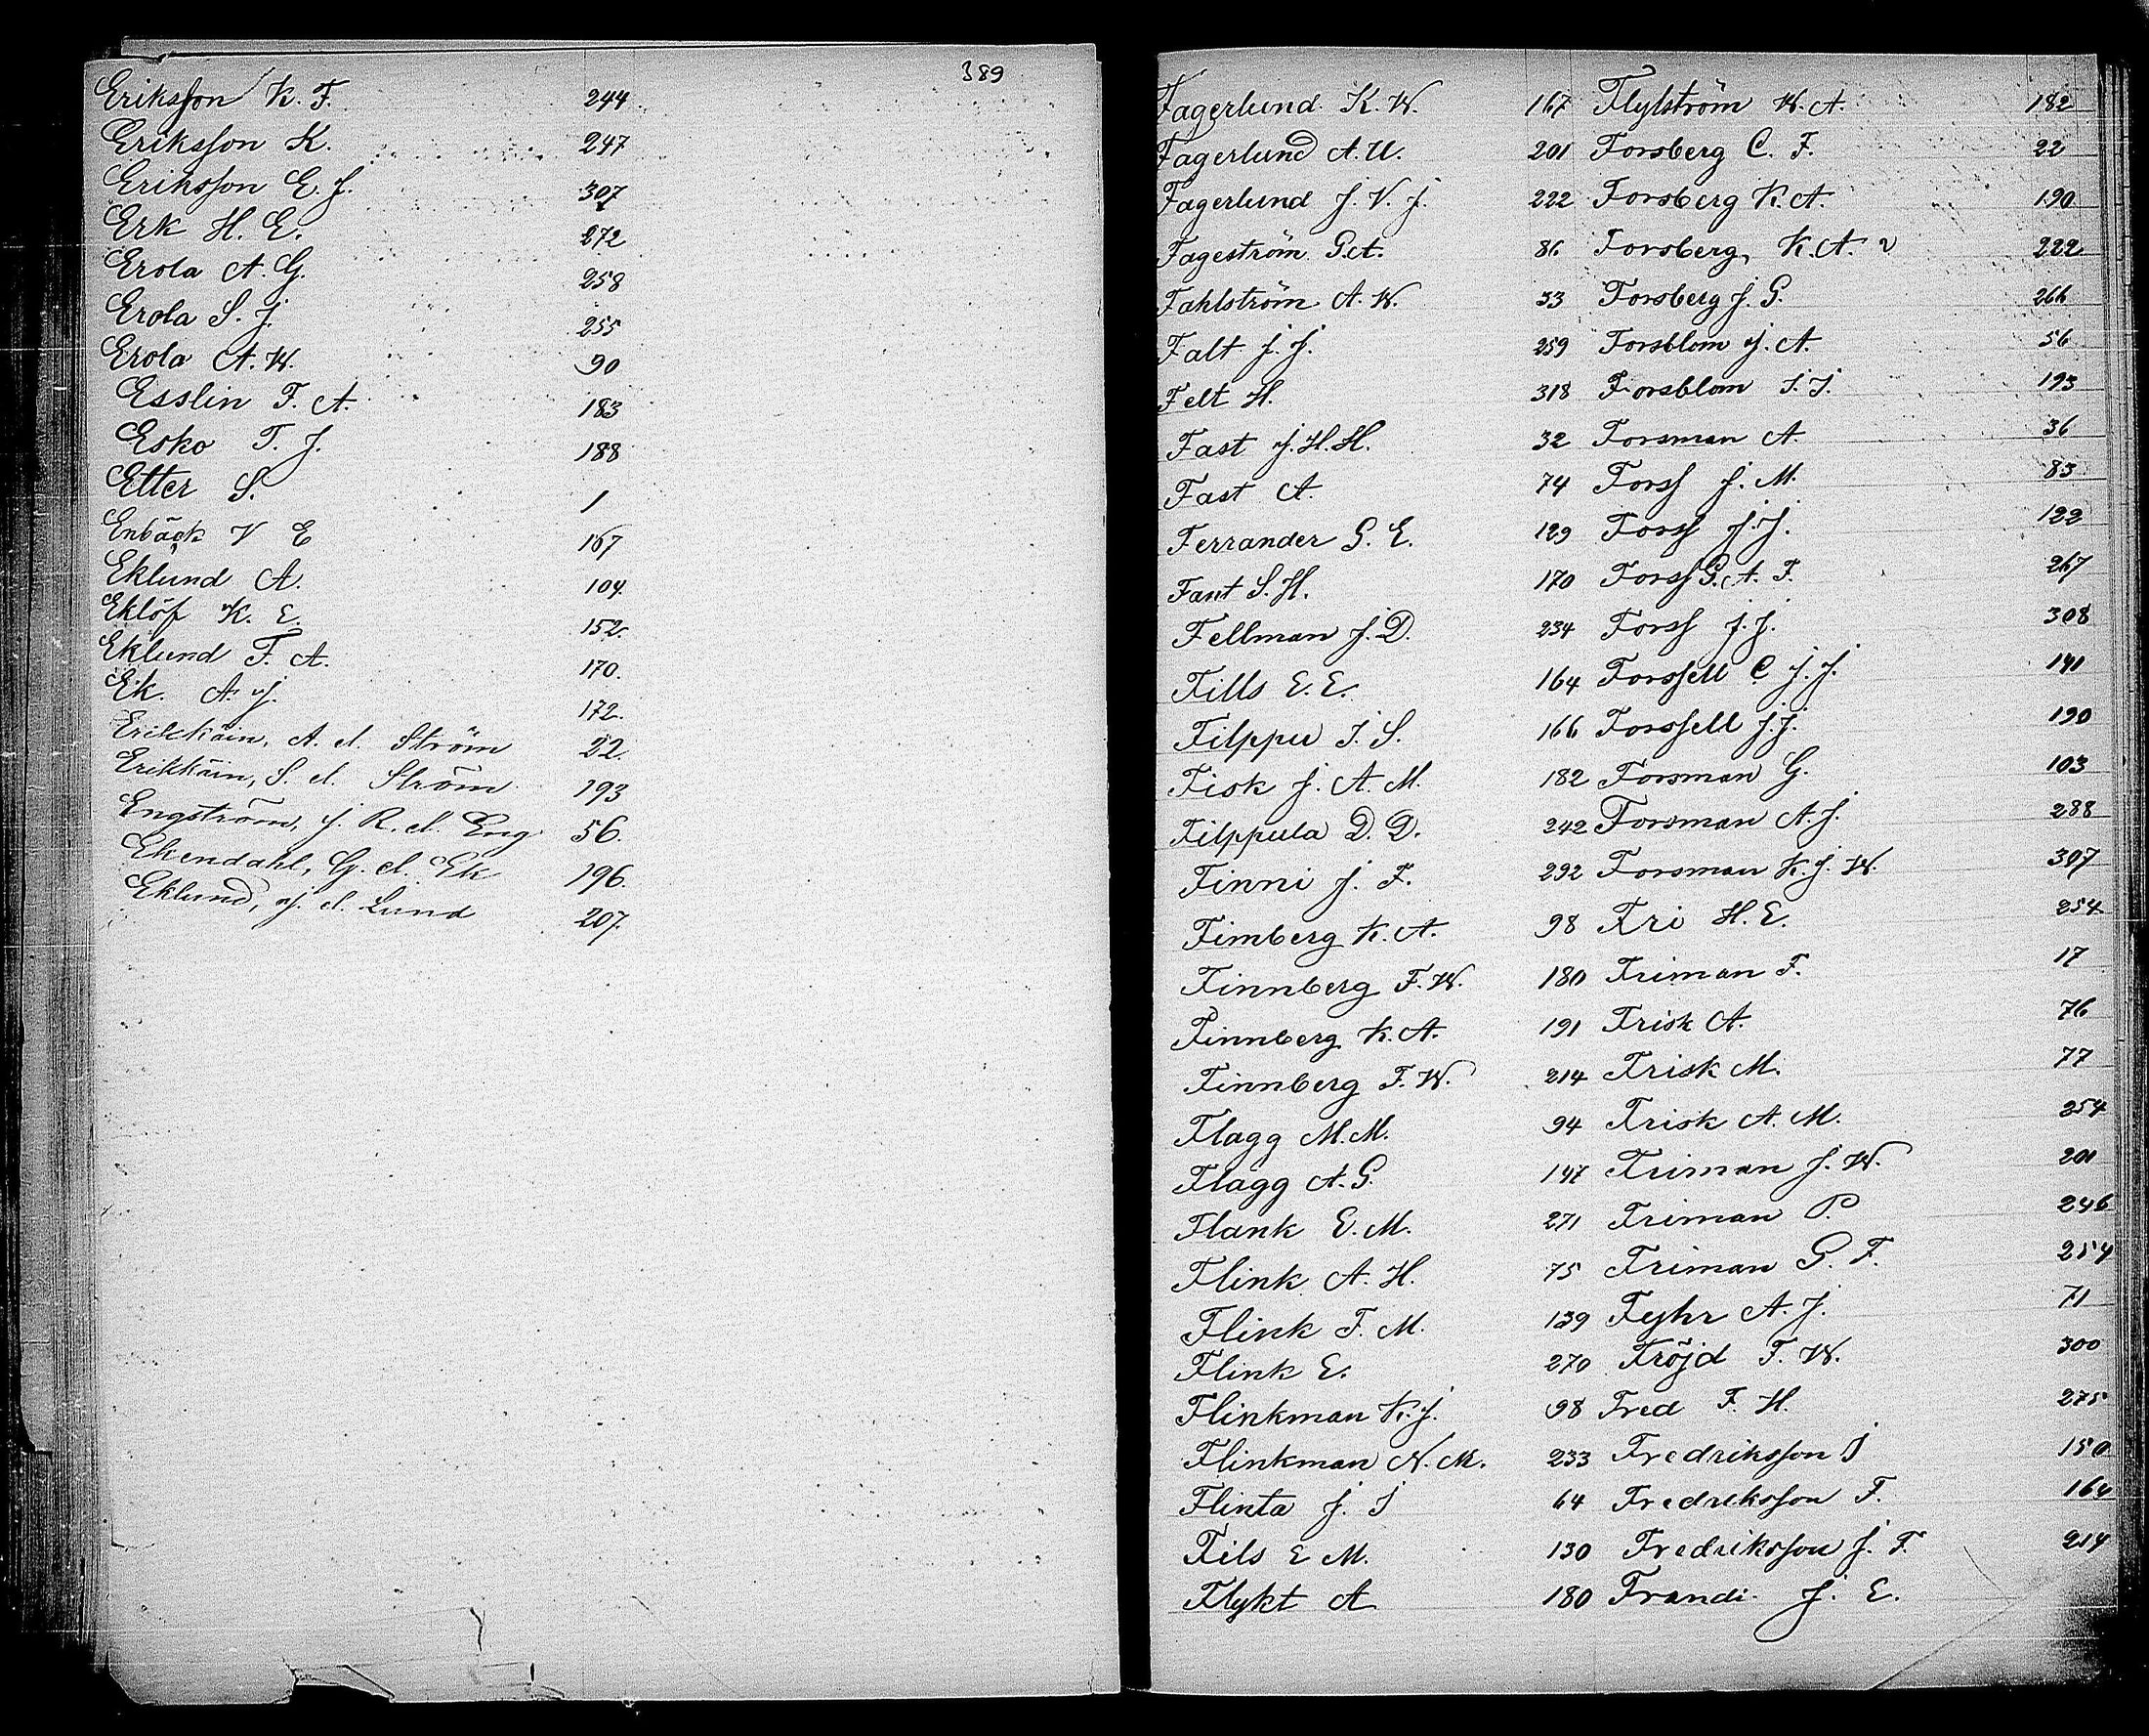 389
Eriksson K. F. 244
Eriksson K. 247
Eriksson E. J. 307
Erk H. E. 272
Erola A. G. 258
Erola S. J. 255
Erola A. W. 90
Esslin F. A. 183
Esko T. J. 188
Etter S. 1
Enbäck V E 167
Eklund A. 104
Eklöf K. E. 152.
Eklund F. A. 170.
Ek. A. J. 172.
Erikkäin, A. el. Ström 22.
Erikkäin, S. el. Ström 193
Engström, J. R. el. Eng 56.
Ekendahl, G. el. Ek 196.
Eklund, J. el. Lund 207.
Fagerlund K. W. 167
Fagerlund A. U. 201
Fagerlund J. V. J. 222
Fageström G. A. 86
Fahlström A. W. 33
Falt J. J. 259
Felt H. 318
Fast J. H. H. 32
Fast A. 74
Ferrander G. E. 129
Fant S. H. 170
Fellman J. D. 234
Fills E. E. 164
Filppu I. S. 166
Fisk J. A. M. 182
Filppula D. D. 242
Finni J. F. 292
Fimberg K. A. 98
Finnberg F. W. 180
Finnberg K. A. 191
Finnberg F. W. 214
Flagg M. M. 94
Flagg A. G. 147
Flank E. M. 271
Flink A. H. 75
Flink F. M. 139
Flink E. 270
Flinkman K. J. 98
Flinkman N. M. 233
Flinta J. I 64
Fils E M. 130
Flykt A 180
Flylström W. A. 182
Forsberg C. F. 22
Forsberg K. A. 190
Forsberg K. A. 222
Forsberg J. G. 266
Forsblom J. A. 56
Forsblom I. I. 193
Forsman A. 36
Forss J. M. 83
Forss J. J. 122
Forss G. A. F. 267
Forss J. J. 308
Forssell C J. J. 141
Forssell J. J. 190
Forsman G. 103
Forsman A. J. 288
Forsman K. J. W. 307
Fri H. E. 254
Friman F. 17
Frisk A. 76
Frisk M. 77
Frisk A. M. 254
Friman J. W. 201
Friman P. 246
Friman G. F. 254
Fyhr A. J. 71
Fröjd F. W. 300
Fred F. H. 275
Fredriksson I 150
Fredriksson F. 164
Fredriksson J. F. 214
Frandi J. E.